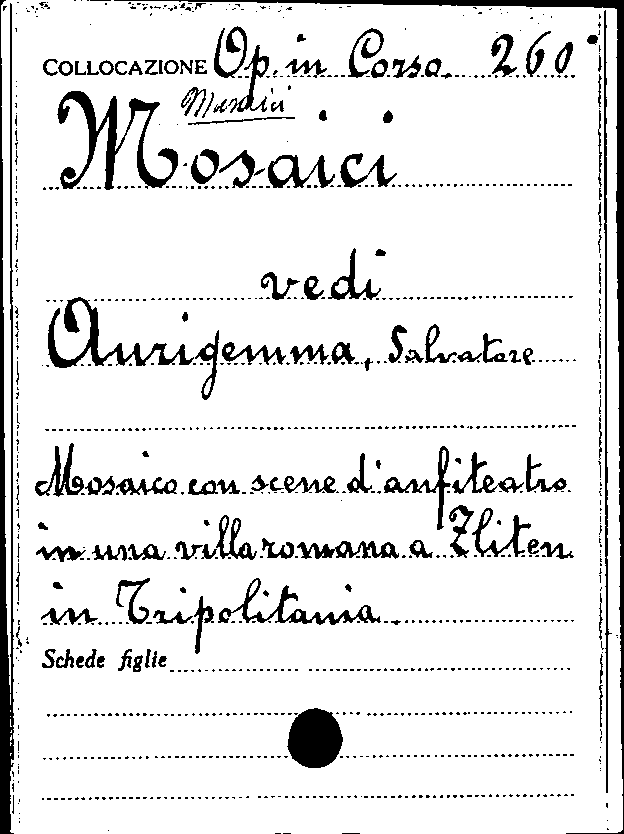 COLLOCAZIONE Op. in Corso. 260
Mosaici
Mosaici
vedi
Aurigemma, Salvatore
Mosaico con scene d'anfiteatro
in una villa romana a Zliten
in Tripolitania.
Schede figlie